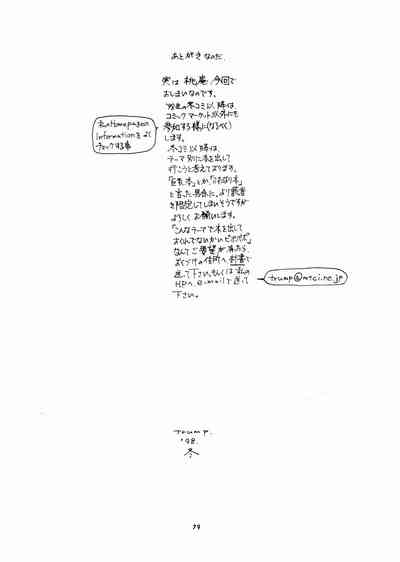 あとがきなのだ.
実は桃庵今回で
おしまいなのです。
冬コミ以降は、
コミックマーケット以外にも
参加する様に(なるべく)
します。
私のHomepageの
Informationをよく
チェックする事
冬コミ以降は、
テーマ別に本を出して
行こうと考えております。
と言った具合に、より読者
を限定してしまいそうですが
よろしくお願いします。
「こんなテーマで本を出して
なんてご要望が有ったら、
おくづけの住所へ封書で
送って下さい。もしくは私の
HPへ、e-mailで送って
下さい。
trump@mtci.ne.jp
TRUMP.
'98.
冬
79